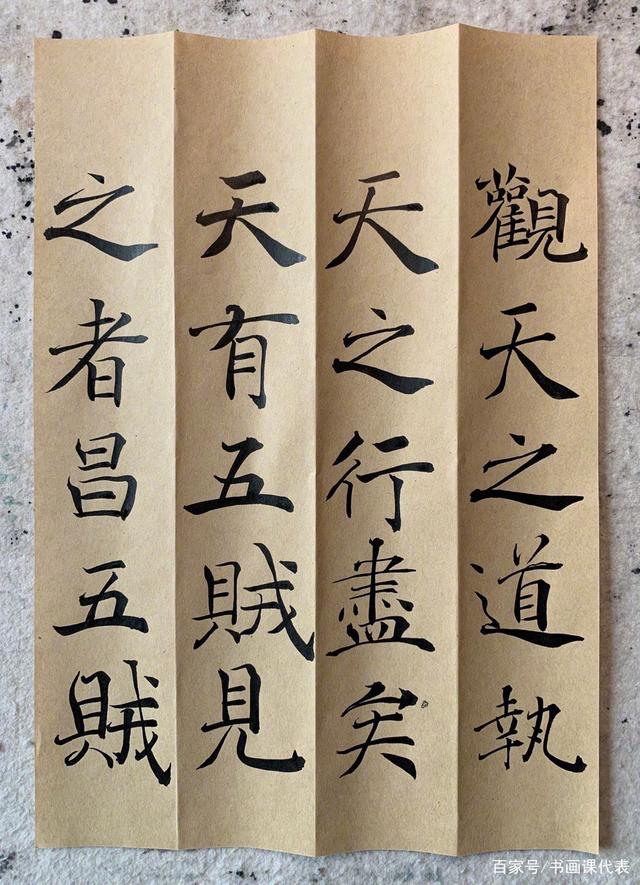 觀天之道執
天之行盡矣
天有五賊見
之者昌五賊
百家号/书画课代表